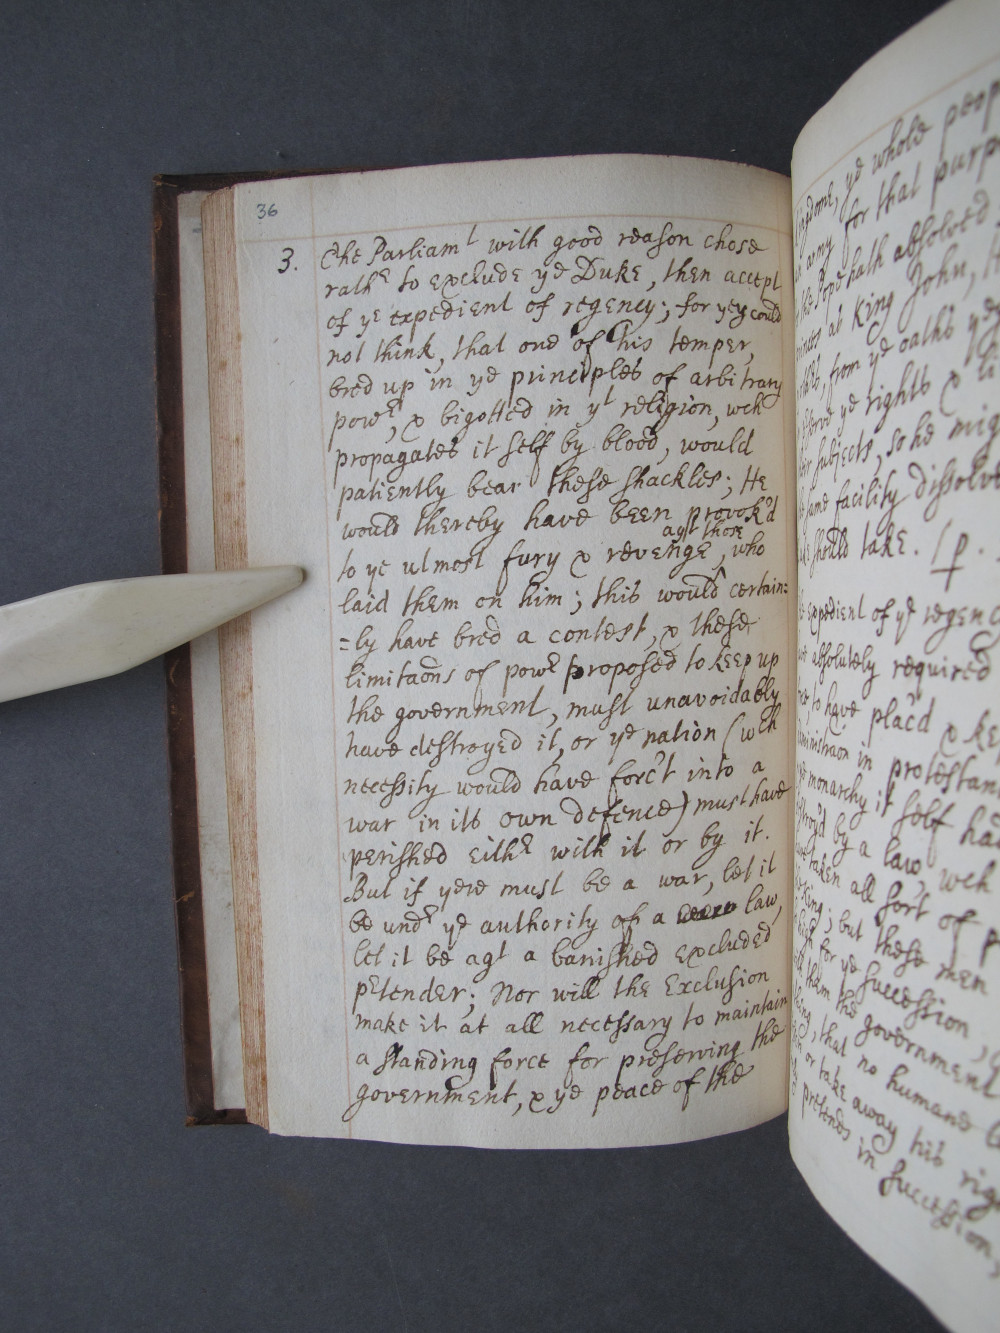 36
3. The Parliamt with good reason chose
rathr to exclude ye Duke, then accept
of ye expedient of regency; for yey could
not think, that one of his temper,
bred up in ye principles of arbitrary
powr, & bigotted in yt religion, wch
propagates it self by blood, would
patiently bear these shackles; He
would thereby have been provok'd
agst those
to ye utmost fury & revenge, who
laid them on him; this would certain=
=ly have bred a contest, & these
limitaõns of powr proposed to keep up
the government, must unavoidably
have destroyed it, or ye nation (wch
necessity would have forc't into a
war in its own defence) must have
perished eithr with it or by it.
But if yere must be a war, let it
be undr ye authority of a law,
let it be agt a banished excluded
pretender; Nor will the Exclusion
make it at all necessary to maintain
a standing force for preserving the
government, & ye peace of the
ye whole
army for that
the Pope hath absolved
at King John,
from ye oaths
ye rights &
subjects, so he
same facility
should take. (p.
expedient of ye
absolutely required
to have plac'd &
in
monarchy it self had
by a law, wch
taken all sort of
King; but these men
for ye succession
them the government
that no humane
or take away his
pretends in succession,